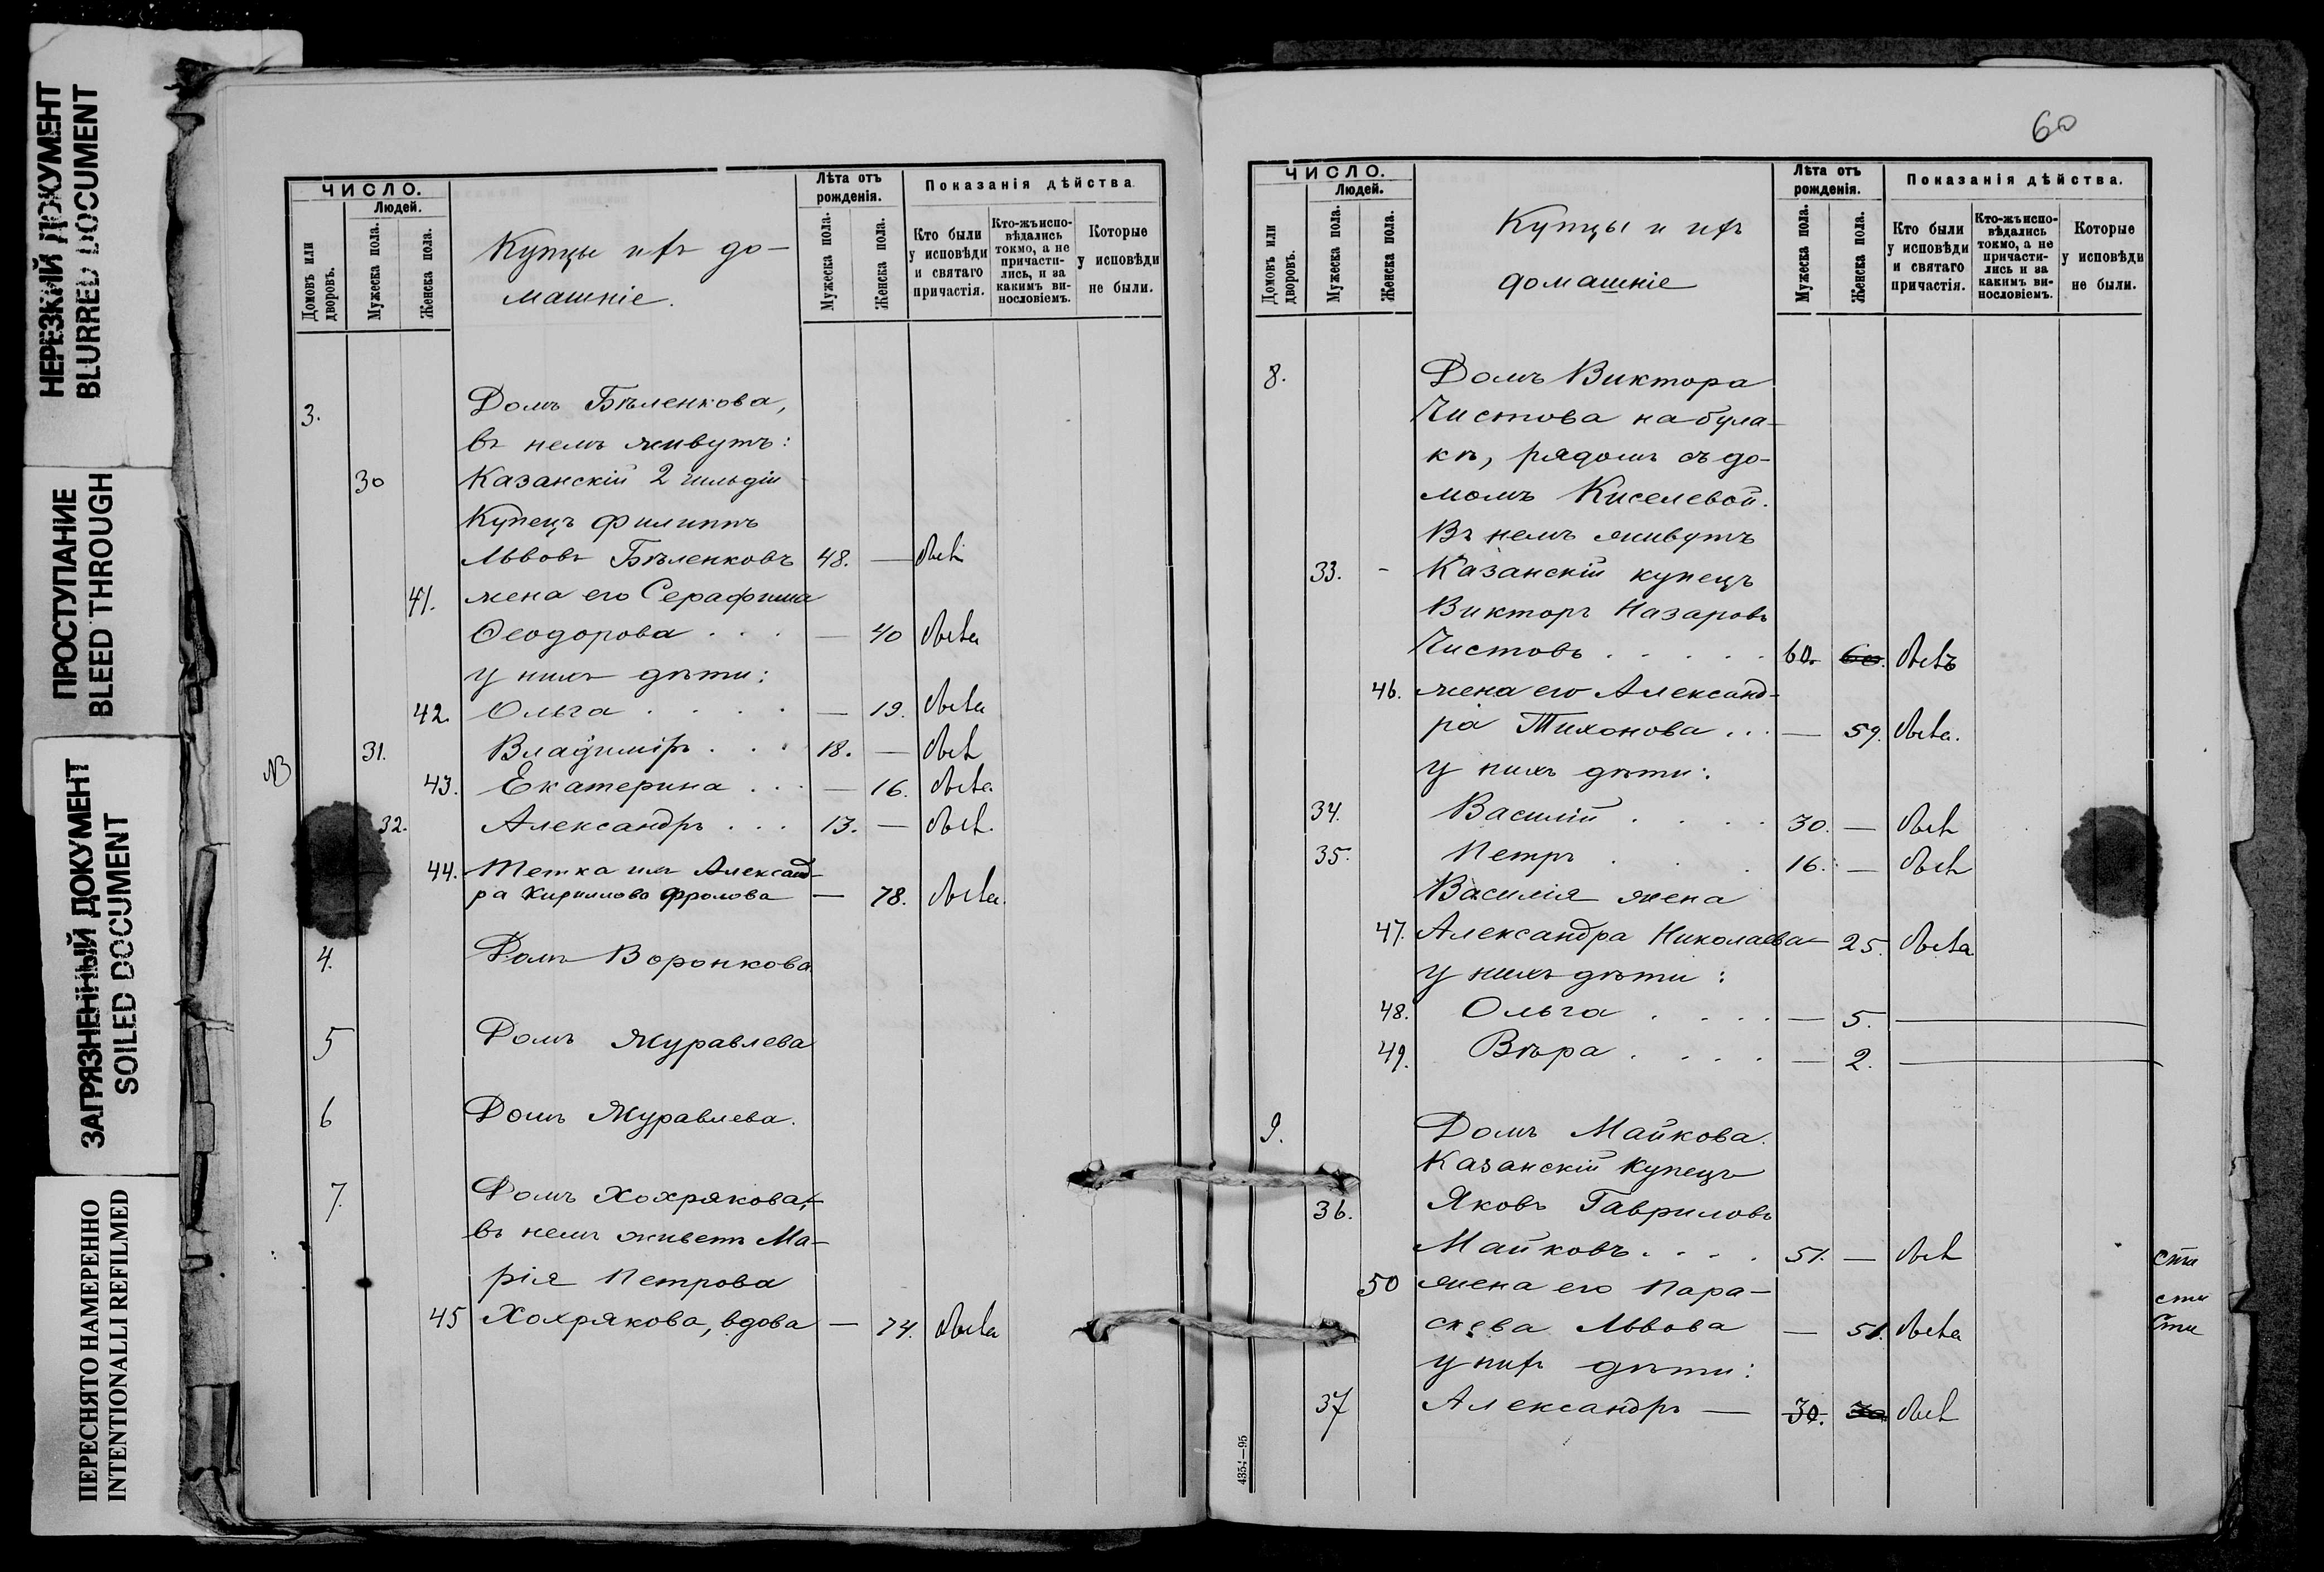 НЕРЕЗКИЙ ДОКУМЕНТ
BLURRED DOCUMENT
ПРОСТУПАНИЕ
BLEED THROUGH
ЗАГРЯЗНЕННЫЙ ДОКУМЕНТ
SOILED DOCUMENT
ПЕРЕСНЯТО НАМЕРЕННО
INTENTIONALLI REFILMED
ЧИСЛО.
Людей.
Домовъ или дворовъ.
Мужеска пола.
Женска пола.
Купцы и ихъ до-
машніе.
Лѣта отъ рожденія.
Мужеска пола.
Женска пола.
Показанія дѣйства.
Кто были у исповѣди и святаго причастія.
Кто-жъ испо-вѣдались токмо, а не причасти-лись, и за какимъ ви-нословіемъ.
Которые у исповѣди не были.
3. Домъ Бѣленкова,
въ немъ живутъ:
30 Казанскій 2 гильдіи
Купецъ Филиппъ
Львовъ Бѣленковъ 48. — былъ
41. жена его Серафима
Ѳеодорова . . . — 40 была
у нихъ дѣти:
42. Ольга . . . . — 19. была
NB 31. Владиміръ . . . 18. — былъ
43. Екатерина . . . — 16. была
32. Александръ . . . 13. — былъ.
44. Тетка ихъ Александ-
ра Кириллова Фролова — 78. была.
4. Домъ Воронкова
5 Домъ Журавлева
6 Домъ Журавлева.
7. Домъ Хохрякова,
въ немъ живетъ Ма-
рія Петрова
45 Хохрякова, вдова — 74. была
60
ЧИСЛО.
Людей.
Домовъ или дворовъ.
Мужеска пола.
Женска пола.
Купцы и ихъ
домашніе
Лѣта отъ рожденія.
Мужеска пола.
Женска пола.
Показанія дѣйства.
Кто были у исповѣди и святаго причастія.
Кто-жъ испо-вѣдались токмо, а не причасти-лись и за какимъ ви-нословіемъ.
Которые у исповѣди не были.
8. Домъ Виктора
Чистова на була-
кѣ, рядомъ съ до-
момъ Киселевой.
Въ немъ живутъ
33. - Казанскій купецъ
Викторъ Назаровъ
Чистовъ . . . . . 60. 60. былъ
46. жена его Александ-
ра Тихонова . . . — 59. была.
у нихъ дѣти:
34. Василій . . . . 30. — былъ
35. Петръ . . . 16. — былъ
Василія жена
47. Александра Николаева — 25. была
у нихъ дѣти:
48. Ольга . . . . — 5. —
49. Вѣра . . . . — 2. —
9. Домъ Майкова.
Казанскій Купецъ
36. Яковъ Гавриловъ
Майковъ . . . . 51. — былъ
50 жена его Пара-
скева Львова — 51. была
у нихъ дѣти:
37 Александръ — 30. 30 былъ
4354—95